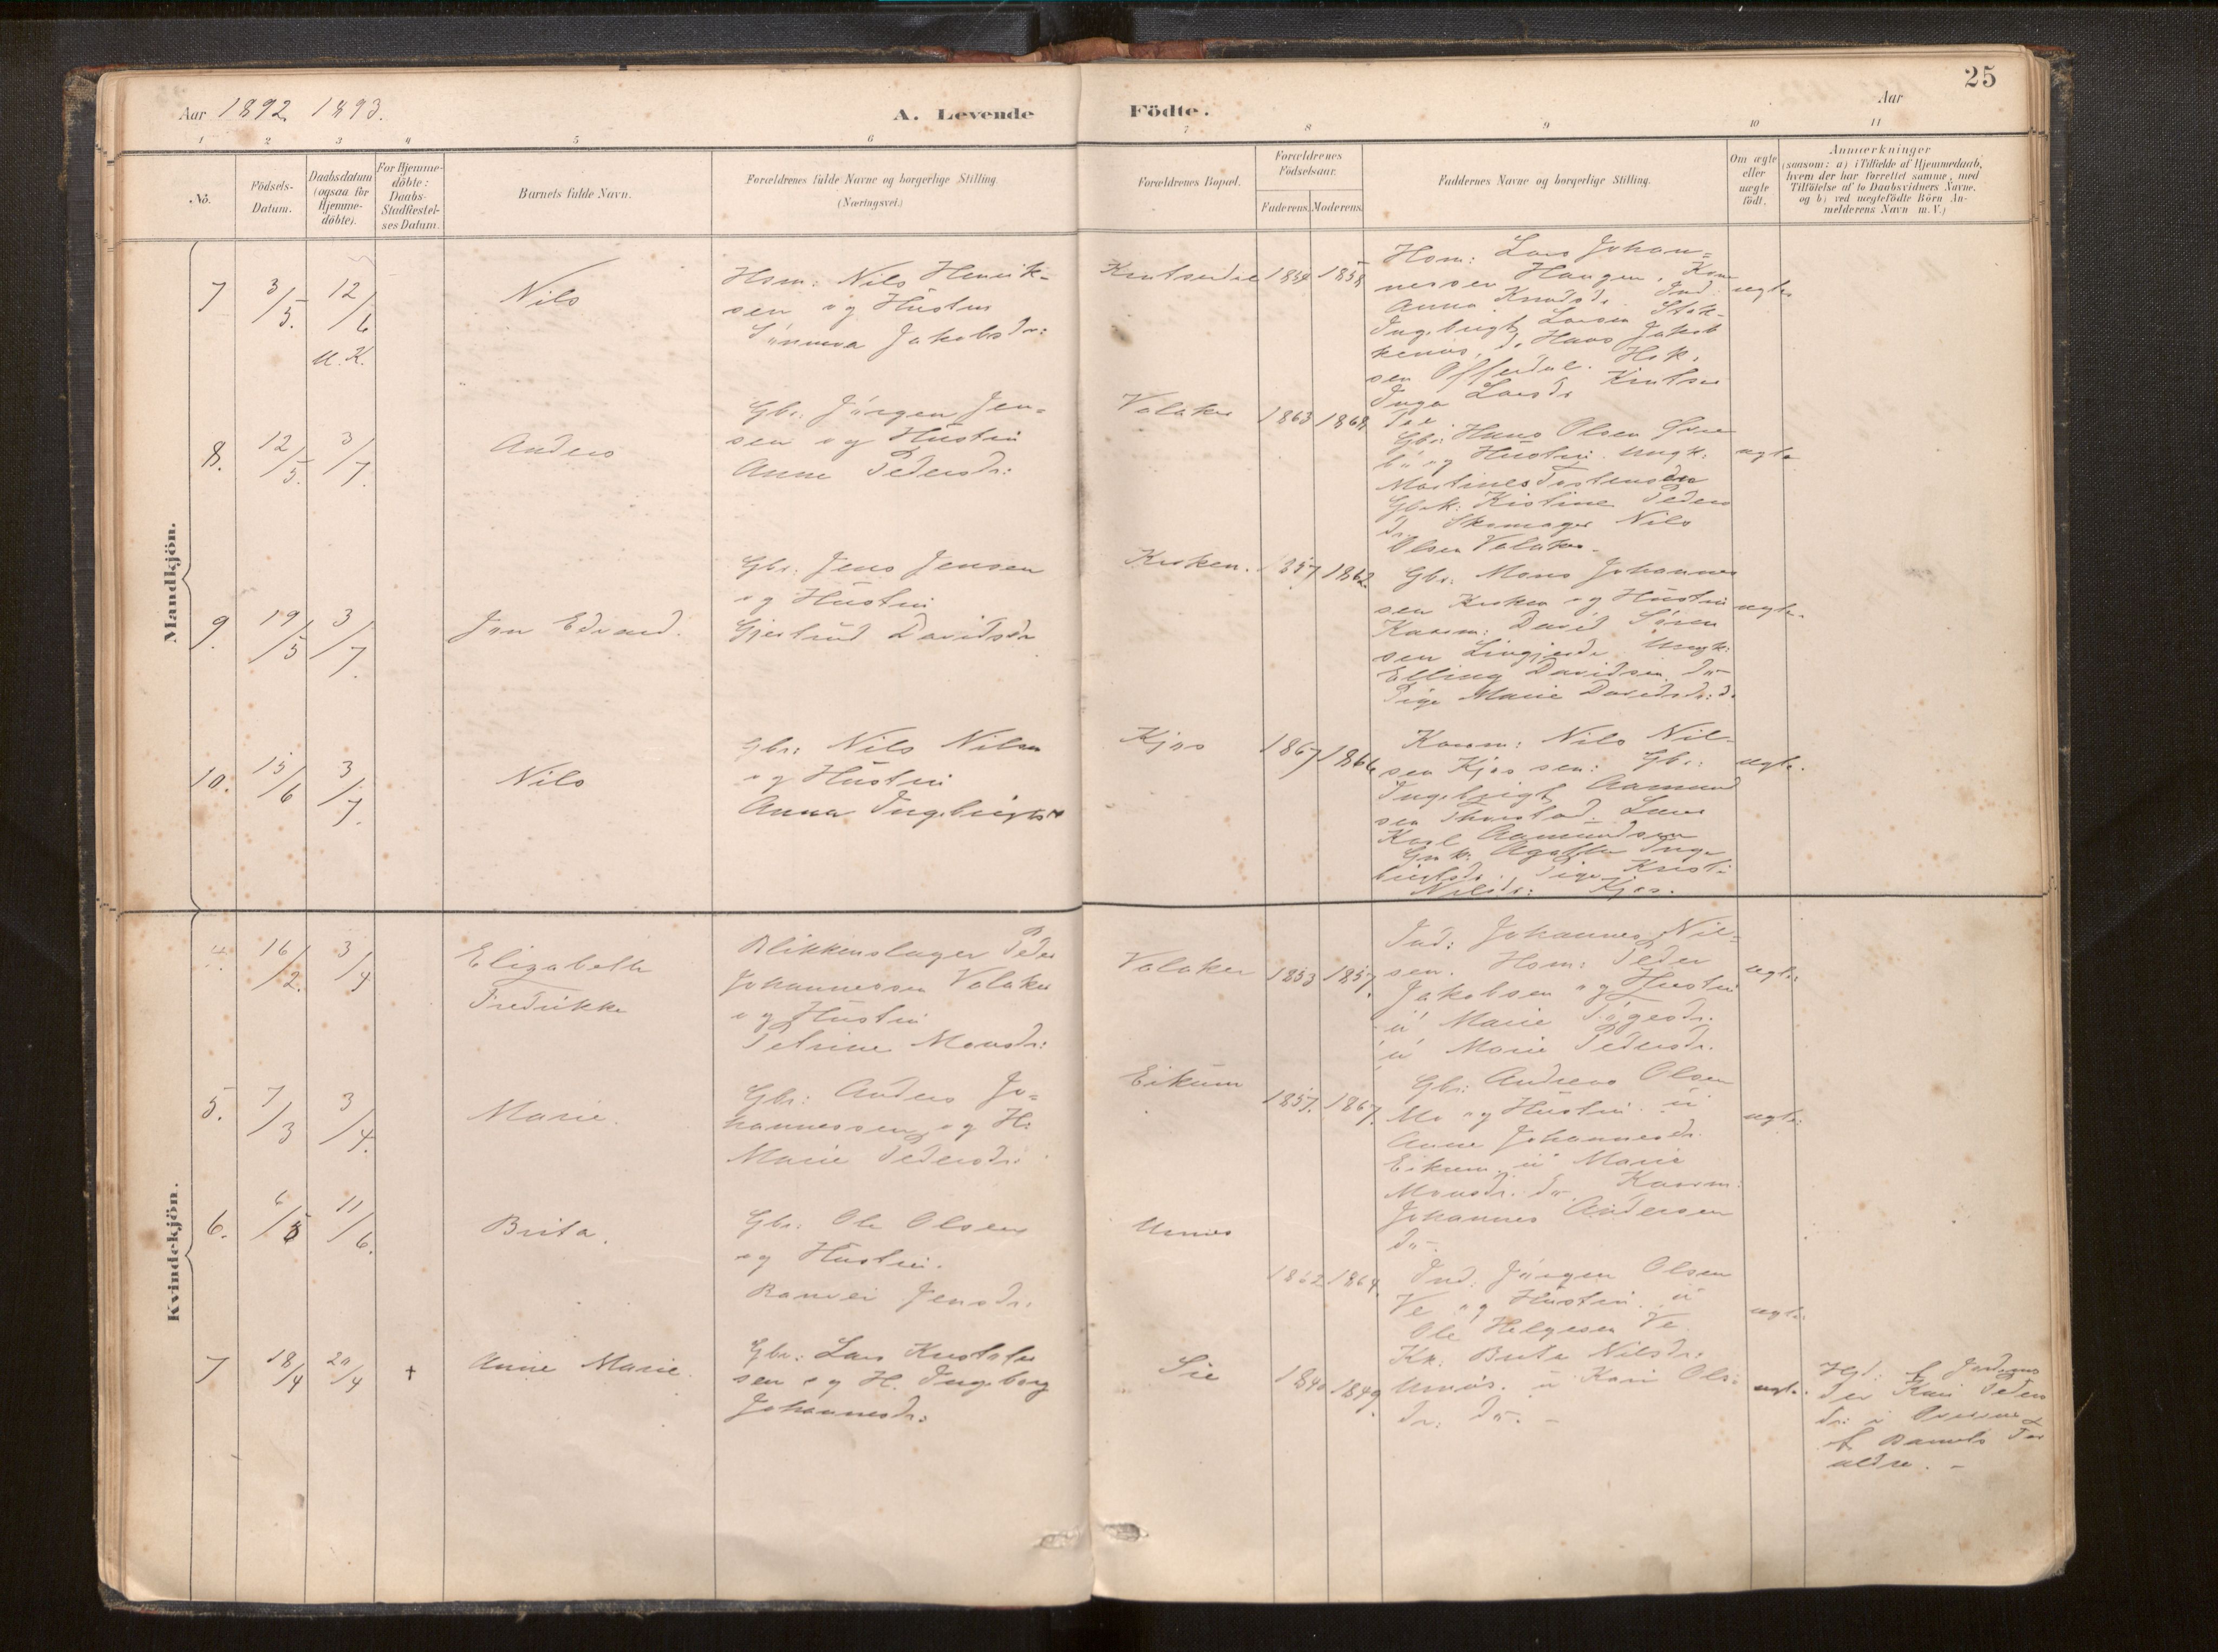 25
Aar 1892 1893.
A. Levende
Födte.
Aar
1 2 3 4 5 6 7 8 9 10 11
No.
Födsels-
Datum.
Daabsdatum
(ogsaa for
Hjemme-
döbte).
For Hjemme-
döbte:
Daabs-
Stadfæstel-
ses Datum.
Barnets fulde Navn.
Forældrenes fulde Navne og borgerlige Stilling.
(Næringsvei.)
Forældrenes Bopæl.
Forældrenes
Födselsaar.
Faderens. Moderens.
Faddernes Navne og borgerlige Stilling.
Om ægte
eller
uægte
født.
Anmærkninger
(saasom: a) i Tilfælde af Hjemmedaab,
hvem der har forrettet samme, med
Tilföielse af to Daabsvidners Navne,
og b) ved uægtefödte Börn An-
melderens Navn m. V.)
Mandkjön.
7 3/5. 12/6
U. K.
Nils
Hsm: Nils Henrik-
sen og Hustru
Synneva Jakobsdr:
1854 1858
Hsm: Lars Johan=
nessen Haugen.
Anna Knudsdr.
Ingebrigt Larsen
Hans Jakob
sen Offerdal.
Inga Larsdr
ægte
8. 12/5. 3/7.
Anders
Gbr. Jörgen Jen=
sen og Hustru
Anna Pedersdr:
Volaker 1863 1868
Gbr. Hans Olsen
og Hustru. Ungk:
Martines
Gbrk: Kistine Peders
dr. Skomager Nils
Olsen Volaker.
ægte
9. 19/5 3/7.
Jon Edvard.
Gbr. Jens Jensen
og Hustru
Gjertrud Davidsdr
Kroken. 1857 1862.
Gbr: Mons Johannes
sen Kroken og Hustru
Kaarm: David Sören
sen Lingjerde. Ungk:
Elling Davidsen do-
Pige Marie Davidsdr: do
ægte.
10. 15/6 3/7.
Nils
Gbr: Nils Nilsen
og Hustru
Anna Ingebrigtsdr
Kjos 1867 1866
Kaarm: Nils Nil-
sen Kjos sen: Gbr:
Ingebrigt Aamund
sen
Karl Aamundsen
Agathe Inge
brigtsdr. Pige Kristi
Nilsdr: Kjos.
ægte.
Kvindekjön.
4. 16/2. 3/4
Elizabeth
Fredrikke
Blikkenslager Peder
Johannessen Volaker
og Hustru
Petrine Monsdr:
Volaker 1853 1857.
Ind: Johannes Nil=
sen. Hsm: Peder
Jakobsen og Hustru
Marie
Marie Pedersdr.
ægte:
5. 7/3 3/4.
Marie.
Gbr: Anders Jo=
hannessen og H:
Marie Pedersdr:
Eikum 1857. 1867.
Gbr: Andreas Olsen
Mo og Hustru.
Anne Johannesdr.
Eikum. Marie
Monsdr. do. Kaarm:
Johannes Andersen
do-.
ægte:
6. 6/5 11/6.
Brita.
Gbr: Ole Olsen
og Hustru.
Ranvei Jensdr:
Urnes 1862 1864.
Ind: Jörgen Olsen
Ve og Hustru.
Ole Helgesen Ve.
Kk: Brita Nilsdr:
Urnes. Kari Ols=
dr: do. -
ægte:
7 18/4 20/4 †
Anne Marie.
Gbr: Lars Kristofer
sen og H. Ingeborg
Johannesdr:
Sie 1840 1849.
ægte.
Hjd: f. Jordmo
der Kari Peders
dr:
f. Barnets For
ældre. -